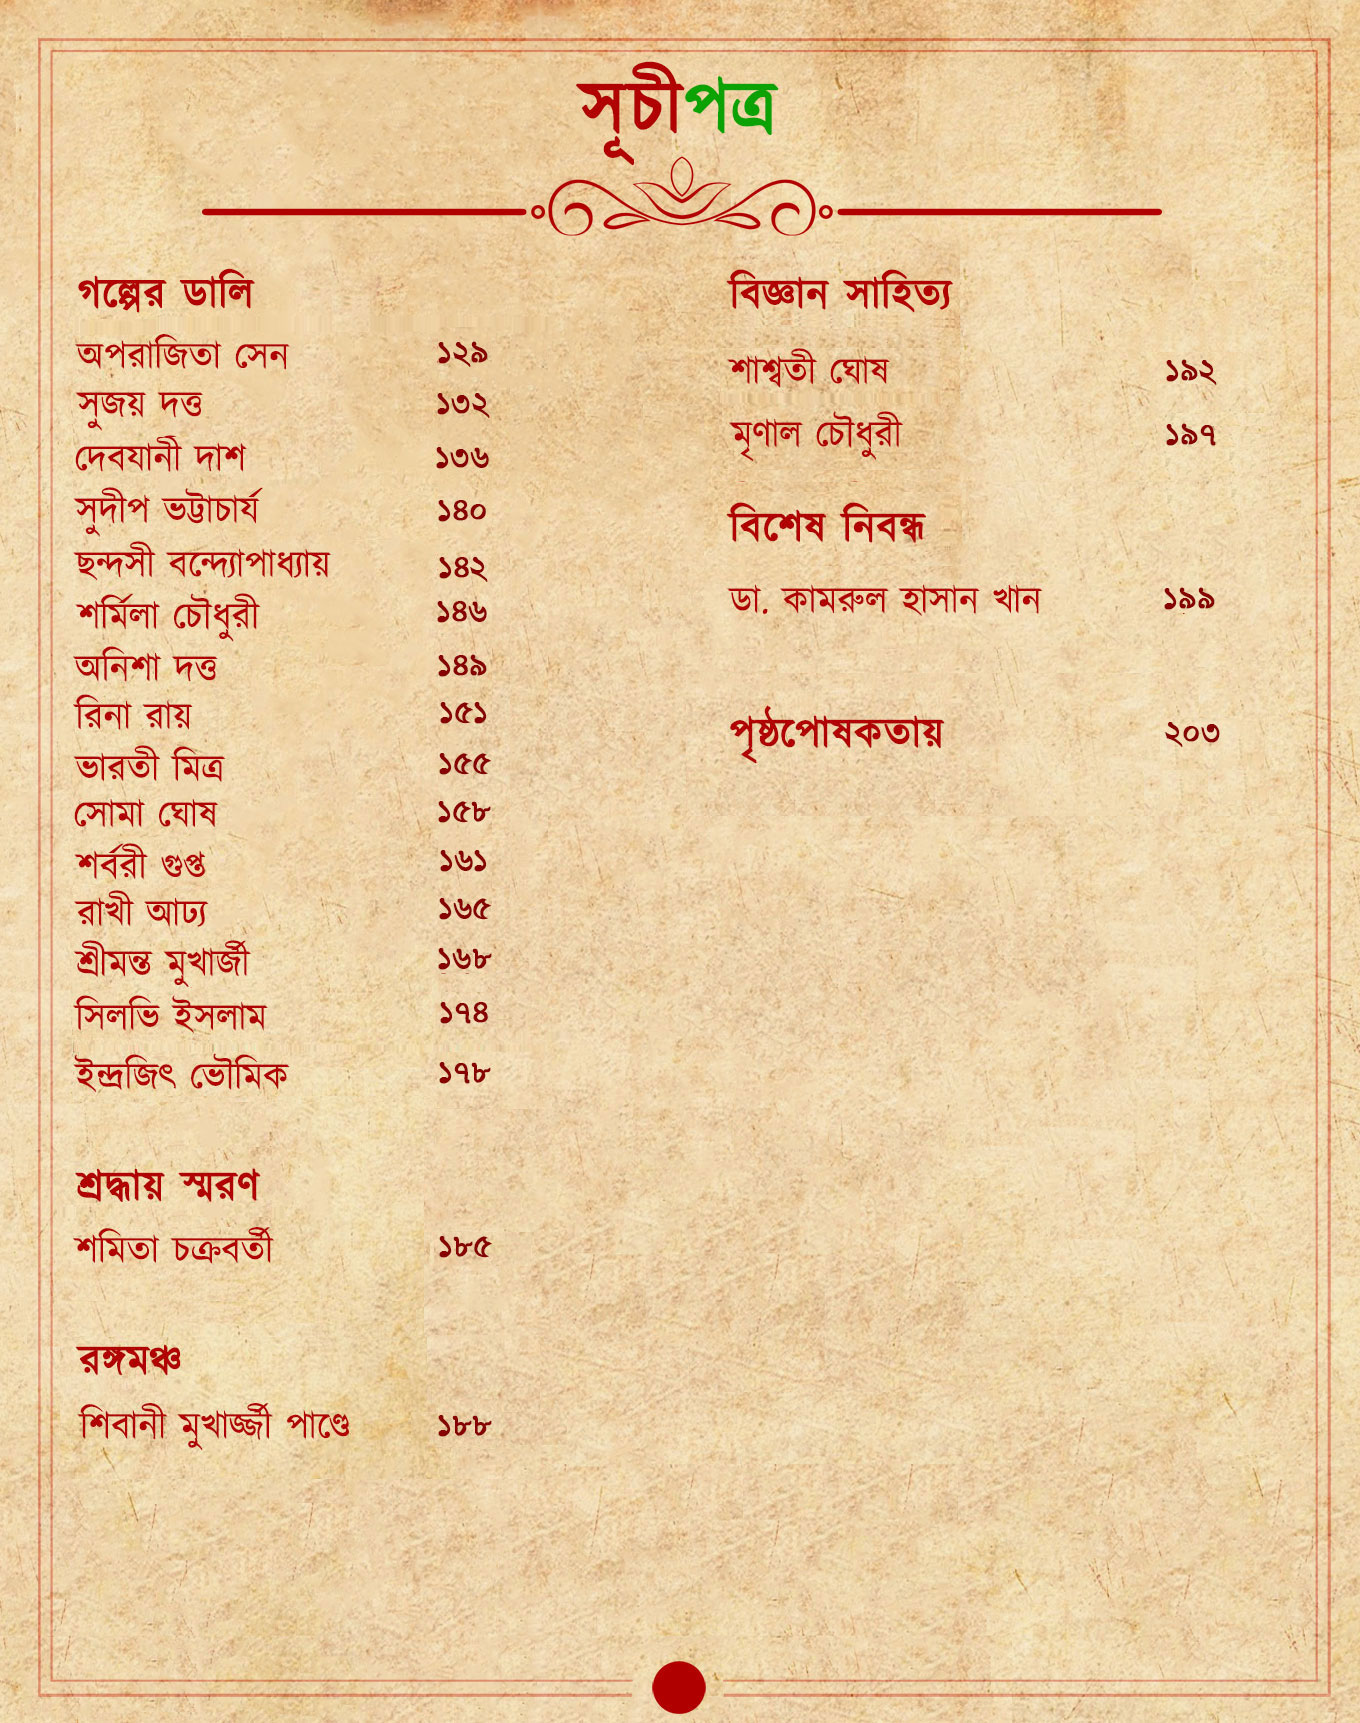 সূচীপত্র
গল্পের ডালি
অপরাজিতা সেন ১২৯
সুজয় দত্ত ১৩২
দেবযানী দাশ ১৩৬
সুদীপ ভট্টাচার্য ১৪০
ছন্দসী বন্দ্যোপাধ্যায় ১৪২
শর্মিলা চৌধুরী ১৪৬
অনিশা দত্ত ১৪৯
রিনা রায় ১৫১
ভারতী মিত্র ১৫৫
সোমা ঘোষ ১৫৮
শর্বরী গুপ্ত ১৬১
রাখী আঢ্য ১৬৫
শ্রীমন্ত মুখার্জী ১৬৮
সিলভি ইসলাম ১৭৪
ইন্দ্রজিৎ ভৌমিক ১৭৮
শ্রদ্ধায় স্মরণ
শমিতা চক্রবর্তী ১৮৫
রঙ্গমঞ্চ
শিবানী মুখার্জ্জী পাণ্ডে ১৮৮
বিজ্ঞান সাহিত্য
শাশ্বতী ঘোষ ১৯২
মৃণাল চৌধুরী ১৯৭
বিশেষ নিবন্ধ
ডা. কামরুল হাসান খান ১৯৯
পৃষ্ঠপোষকতায় ২০৩